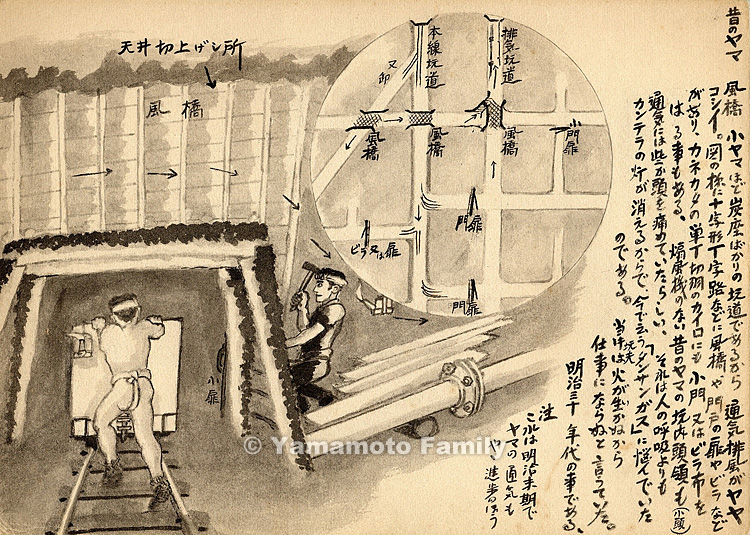 昔のヤマ
風橋 小ヤマほど炭座ばかりの坑道であるから 通気排風がヤヤ
コシイ。図の様に十字形丁字路などに風橋や門戸の扉やビラなど
があり、カネカタの単丁切羽のカイロにも小門又はビラ布を
はる事もある。扇風機のない昔のヤマの坑内頭領も(小頭)
通気には些か頭を痛めていたらしい、それは人の呼吸よりも
カンテラの灯が消えるからで、今で云うタンサンガスに悩んでいた
のである。
当時は火が生かぬから
坑先
仕事にならぬと言っていた。
明治三十年代の事である、
注
これは明治末期で
ヤマの通気も
やゝ進歩のほう
天井切上げし所
風橋
本線坑道
排気坑道
又卸
風橋
風橋
風橋
小門扉
門扉
ビラ又は扉
門扉
小扉
© Yamamoto Family